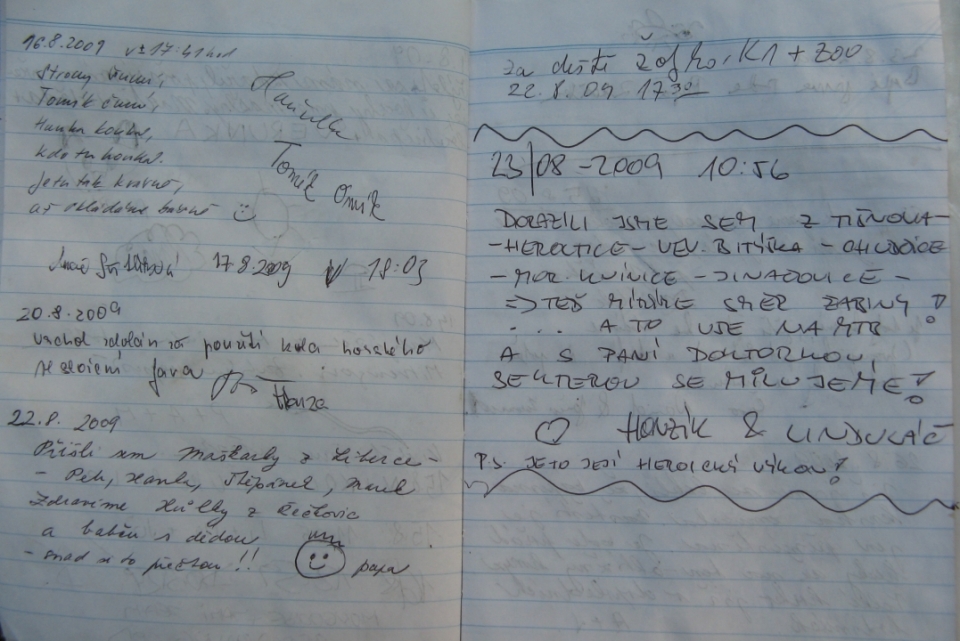 16.8.2009 v 17:41 hod
Stromy šumí,
Tomík čumí,
Hanka kouká,
kdo tu houká.
Je tu tak krásně,
až skládáme básně
Hanička
Tomík Omík
17.8.2009 18:03
20.8.2009
vrchol zdolán za použití kola horského
Honza
22.8. 2009
Přišli sem Maškarky z Liberce
- Petr, Hanka, Štěpánek, Marek
Zdravíme Hůlky z
a babču s dědou
- snad si to přečtou!!
papa
Za deště K1 + ZOO
22.8.09 17 30
23/08-2009 10:56
DORAZILI JSME SEM Z TIŠNOVA-
-HEROLTICE-VEV. BITÝŠKA-CHUDČICE
-MOR. KNÍNICE-JINAČOVICE-
=> TEĎ MÍŘÍME SMĚR ŽABINY!
.... A TO VŠE NA MTB
A S PANÍ DOKTORKOU,
SE KTEROU SE MILUJEME!
♡ HONZÍK & LINDUKÁČ
P.S. JE TO JEJÍ HEROICKÝ VÝKON!